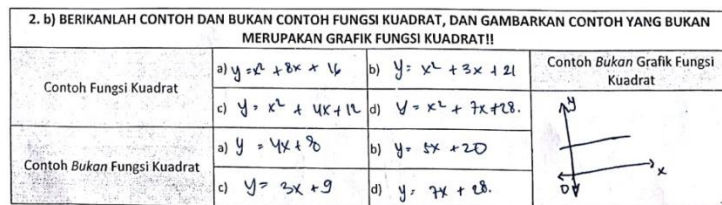 2. b) BERIKANLAH CONTOH DAN BUKAN CONTOH FUNGSI KUADRAT, DAN GAMBARKAN CONTOH YANG BUKAN
MERUPAKAN GRAFIK FUNGSI KUADRAT!!
Contoh Fungsi Kuadrat
a) y = x² + 8x + 16
b) y = x² + 3x + 21
c) y = x² + 4x + 12
d) y = x² + 7x + 28.
Contoh Bukan Grafik Fungsi
Kuadrat
y
x
0
Contoh Bukan Fungsi Kuadrat
a) y = 4x + 8
b) y = 5x + 20
c) y = 3x + 9
d) y = 7x + 28.